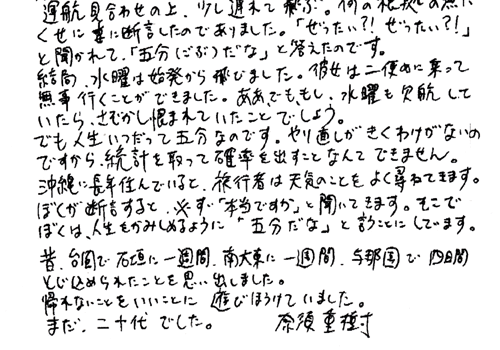 運航見合わせの上、少し遅れて飛ぶ。何の根拠も無い
くせに妻に断言したのでありました。「ぜったい?!ぜったい?!」
と聞かれて、「五分(ごぶ)だな」と答えたのです。
結局、水曜は始発から飛びました。彼女は二便めに乗って
無事行くことができました。ああでも、もし、水曜も欠航して
いたら、さぞかし恨まれていたことでしょう。
でも人生いつだって五分なのです。やり直しがきくわけがないの
ですから、統計を取って確率を出すことなんてできません。
沖縄に長年住んでいると、旅行者は天気のことをよく尋ねてきます。
ぼくが断言すると、必ず「本当ですか」と聞いてきます。そこで
ぼくは、人生をかみしめるように「五分だな」と言うことにしています。
昔、台風で石垣に一週間、南大東に一週間、与那国で四日間
とじ込められたことを思い出しました。
帰れないことをいいことに遊びほうけていました。
まだ、二十代でした。 奈須重樹